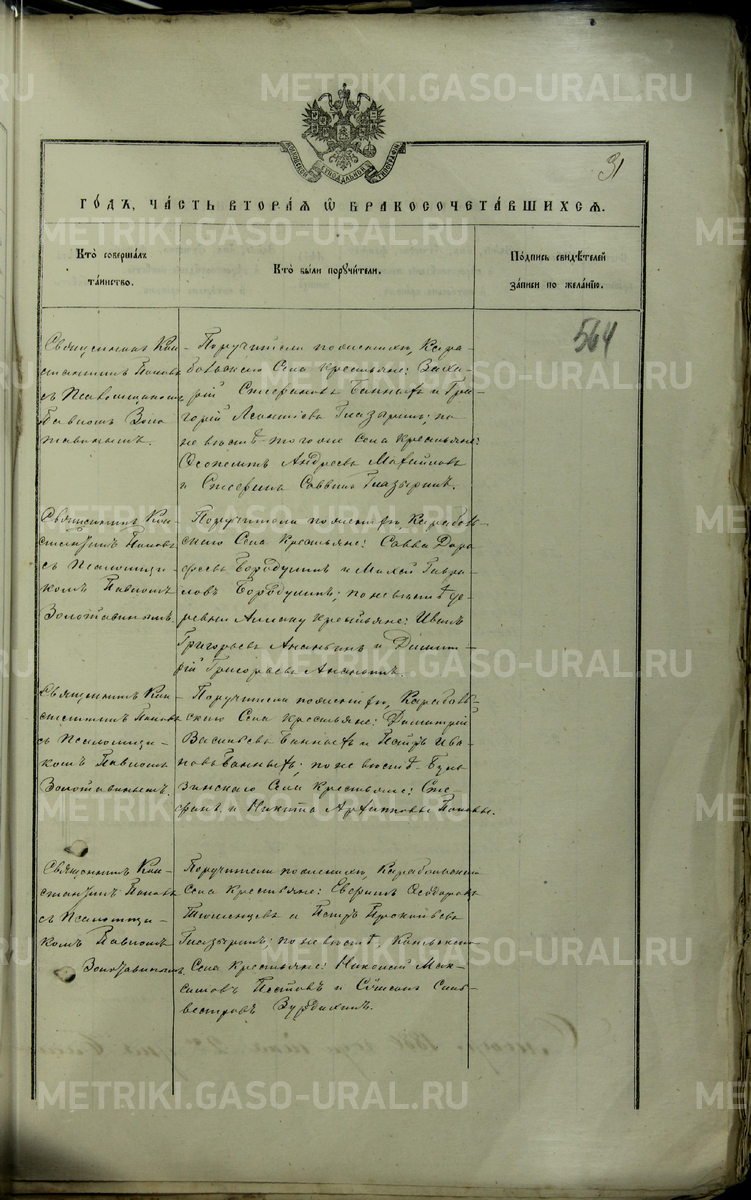 METRIKI.GASO-URAL.RU
31
ГО́ДЪ, ЧА́СТЬ ВТОРА́Я Ѿ БРАКОСОЧЕТА́ВШИХСЯ.
Кто̀ соверша́лъ
та́инство.
Кто̀ бы́ли поручи́тели.
По́дпись свидѣ́телей
за́писи по жела́нїю.
564
Священникъ Кон-
стантинъ Поповъ
съ Псаломщикомъ
Павломъ Золо-
тавинымъ.
Поручители по женихѣ, Кара-
больскаго Села крестьяне: Заха-
рій Стефановъ Банныхъ и Гри-
горій Леонтіевъ Глазыринъ; по
невѣстѣ того же Села крестьяне:
Андреевъ
и Саввинъ Глазыринъ.
Священникъ Кон-
стантинъ Поповъ
съ Псаломщи-
комъ Павломъ
Золотавинымъ
Поручители по женихѣ, Караболь-
скаго Села крестьяне: Савва Доро-
феевъ Бородулинъ и Гаври-
ловъ Бородулинъ; по невѣстѣ де-
ревни крестьяне: Иванъ
Григорьевъ Ананьинъ и Димит-
рій Григорьевъ
Священникъ Кон-
стантинъ Поповъ
съ Псаломщи-
комъ Павломъ
Золотавинымъ.
Поручители по женихѣ, Караболь-
скаго Села крестьяне: Димитрій
Васильевъ Банныхъ и Петръ Ива-
новъ Банныхъ; по невѣстѣ
Села крестьяне: Сте-
фанъ и Никита Поповы.
Священникъ Кон-
стантинъ Поповъ
съ Псаломщи-
комъ Павломъ
Золотавинымъ
Поручители по женихѣ, Карабольскаго
Села крестьяне: Ѳеодоровъ
Тюменцевъ и Петръ Прокопьевъ
Глазыринъ; по невѣстѣ,
Села крестьяне: Мак-
симовъ Пестовъ и Силь-
вестровъ